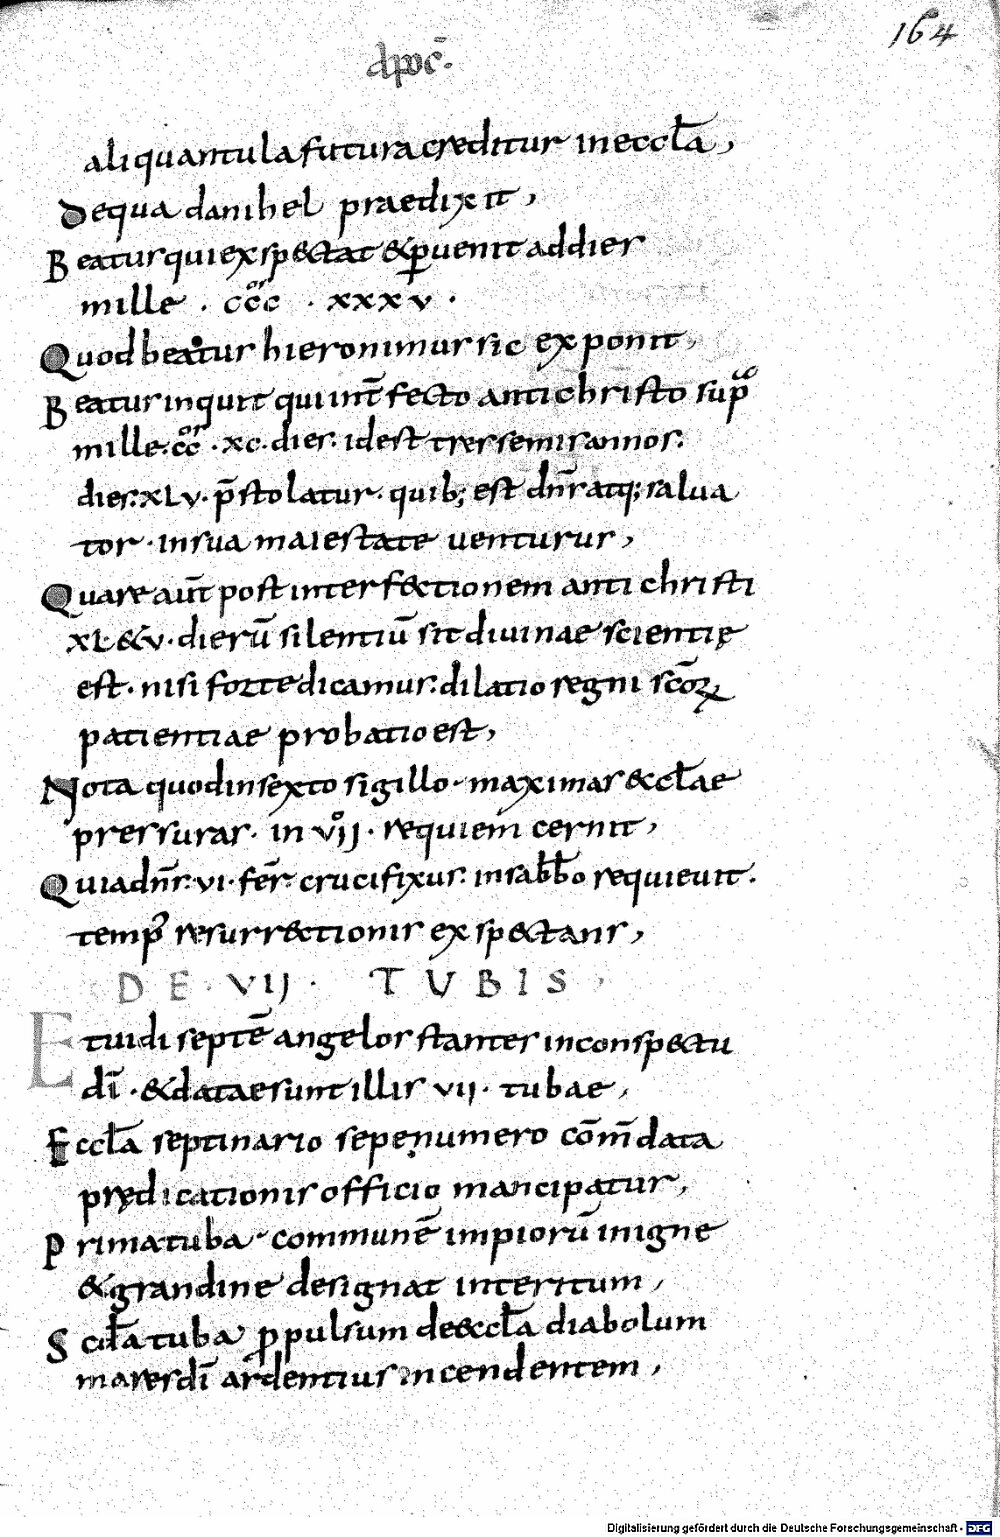 164
apoc̄.
aliquantula futura creditur in eccl̄a,
De qua danihel praedixit,
Beatus qui exspectat & ꝑuenit ad dies
mille . ccc . xxxv .
Quod beatus hieronimus sic exponit,
Beatus inquit qui int̄fecto antichristo sup̄
mille. cc . xc. dies. id est tres semis annos.
dies. xLv. p̄stolatur. quib; est dn̄s atq; salua
tor . in sua maiestate uenturus,
Quare aūt post interfectionem antichristi
xL & v. dierū silentiū sit diuinae scientię
est. nisi forte dicamus. dilatio regni sc̄oꝝ
patientiae probatio est,
Nota quod in sexto sigillo. maximas eccl̄ae
pressuras. in vij. requiem cernit,
Quia dn̄s. vi. fer̄. crucifixus. in sabb̄o requieuit.
temp̄ resurrectionis exspectans,
DE . VIJ . TUBIS ,
Et uidi septē angelos stantes in conspectu
dī . & datae sunt illis vij. tubae,
Eccl̄a septinario sepe numero com̄data
prędicationis officio mancipatur,
Prima tuba . communē impiorū in igne
& grandine designat interitum,
Scd̄a tuba ꝓpulsum de eccl̄a diabolum
mares dī ardentius incendentem,
Digitalisierung gefördert durch die Deutsche Forschungsgemeinschaft - DFG